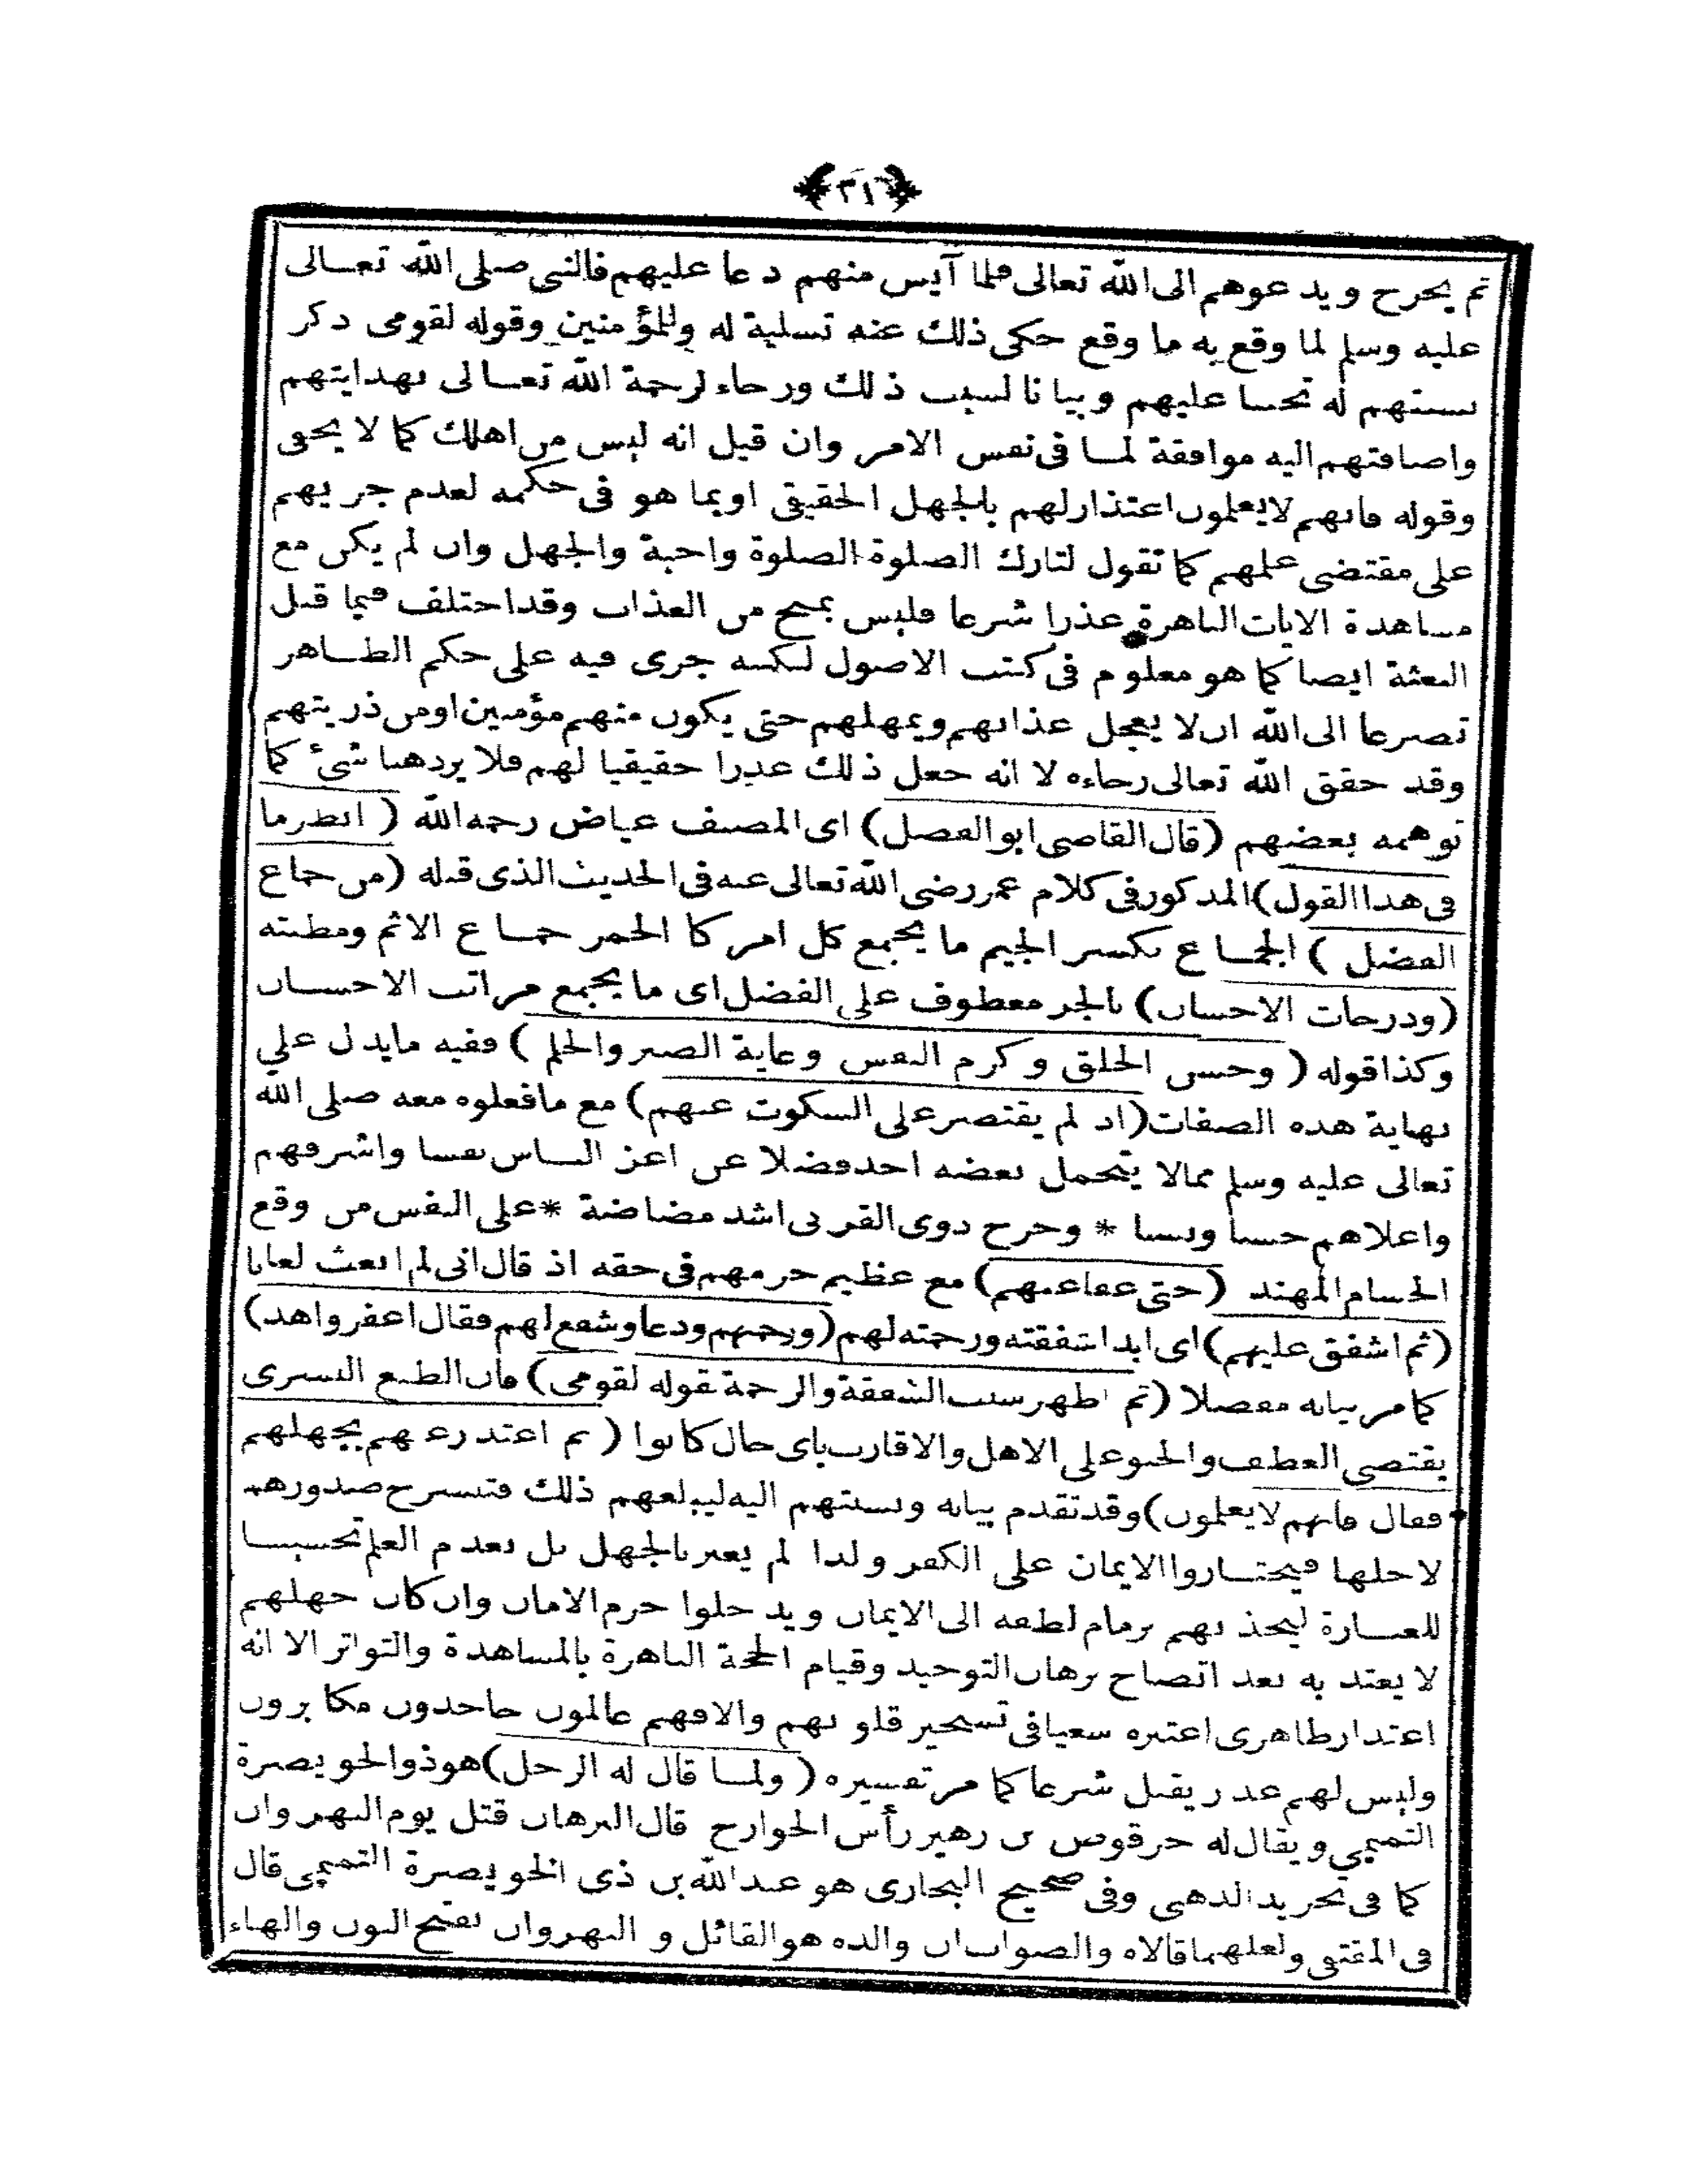 ﴿٣١﴾
ثم يخرج ويدعوهم الى الله تعالى فلما آيس منهم دعا عليهم فالنبى صلى الله تعالى
عليه وسلم لما وقع به ما وقع حكى ذلك عنه تسلية له وللمؤمنين وقوله لقومى ذكر
نسبتهم له تحننا عليهم وبيانا لسبب ذلك ورجاء لرحمة الله تعالى بهدايتهم
واضافتهم اليه موافقة لما فى نفس الامر وان قيل انه ليس من اهلك كما لا يخفى
وقوله فانهم لايعلمون اعتذار لهم بالجهل الحقيقى او بما هو فى حكمه لعدم جريهم
على مقتضى علمهم كما تقول لتارك الصلوة الصلوة واجبة والجهل وان لم يكن مع
مشاهدة الايات الباهرة عذرا شرعا فليس بمنج من العذاب وقد اختلف فيما قبل
البعثة ايضا كما هو معلوم فى كتب الاصول لكنه جرى فيه على حكم الظاهر
تضرعا الى الله ان لا يعجل عذابهم ويمهلهم حتى يكون منهم مؤمنين او من ذريتهم
وقد حقق الله تعالى رجاءه لا انه جعل ذلك عذرا حقيقيا لهم فلا يرد هنا شئ كما
توهمه بعضهم (قال القاضى ابو الفضل) اى المصنف عياض رحمه الله (انظر ما
فى هذا القول) المذكور فى كلام عمر رضى الله تعالى عنه فى الحديث الذى قبله (من جماع
الفضل) الجماع بكسر الجيم ما يجمع كل امر كا الخمر جماع الاثم ومظنته
(ودرجات الاحسان) بالجر معطوف على الفضل اى ما يجمع مراتب الاحسان
وكذا قوله (وحسن الخلق وكرم النفس وغاية الصبر والحلم) ففيه مايدل على
نهاية هذه الصفات (اذ لم يقتصر على السكوت عنهم) مع مافعلوه معه صلى الله
تعالى عليه وسلم ممالا يتحمل بعضه احد فضلا عن اعز الناس نفسا واشرفهم
واعلاهم حسبا ونسبا * وجرح ذوى القربى اشد مضاضة * على النفس من وقع
الحسام المهند (حتى عفا عنهم) مع عظيم جرمهم فى حقه اذ قال انى لم ابعث لعانا
(ثم اشفق عليهم) اى ابدا شفقته ورحمته لهم (ورحمهم ودعا وشفع لهم فقال اغفر واهد)
كما مر بيانه مفصلا (ثم اظهر سبب الشفقة والرحمة بقوله لقومى) فان الطبع البشرى
يقتضى العطف والحنو على الاهل والاقارب باى حال كانوا (ثم اعتذر عنهم بجهلهم
فقال فانهم لايعلمون) وقد تقدم بيانه ونسبتهم اليه ليبلغهم ذلك فتنشرح صدورهم
لاجلها فيختاروا الايمان على الكفر ولذا لم يعبر بالجهل بل بعدم العلم تحسينا
للعبارة ليجذبهم بزمام لطفه الى الايمان ويدخلوا حرم الامان وان كان جهلهم
لا يعتد به بعد اتضاح برهان التوحيد وقيام الحجة الباهرة بالمشاهدة والتواتر الا انه
اعتذار ظاهرى اعتبره سعيا فى تسخير قلوبهم والا فهم عالمون جاحدون مكابرون
وليس لهم عذر يقبل شرعا كما مر تفسيره (ولما قال له الرجل) هو ذوالخويصرة
التميمى ويقال له حرقوص بن زهير رأس الخوارج قال البرهان قتل يوم النهروان
كما فى تجريد الذهبى وفى صحيح البخارى هو عبد الله بن ذى الخويصرة التميمى قال
فى المقتفى ولعلهما قالاه والصواب ان والده هو القائل والنهروان بفتح النون والهاء